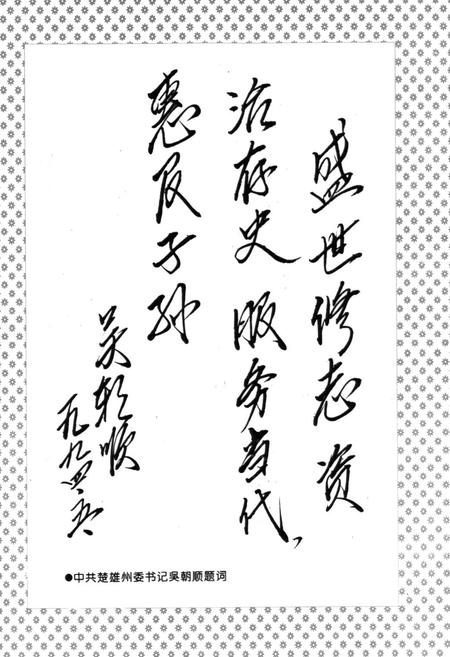 盛世修志资
治存史服务当代，
惠及子孙
吴朝顺
一九九四·五
●中共楚雄州委书记吴朝顺题词